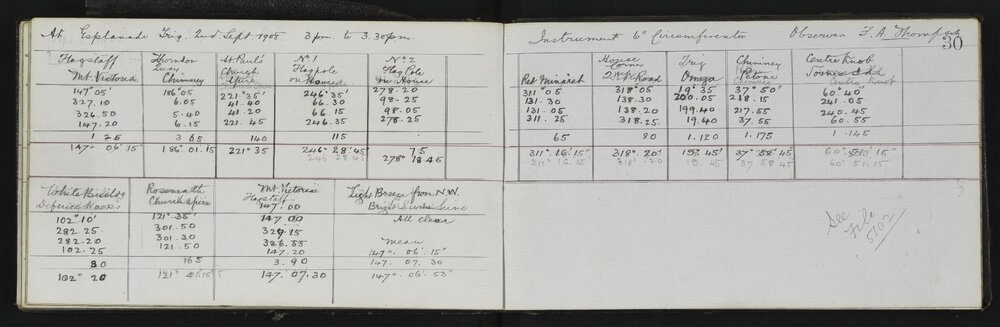 At Esplanade Trig. 2nd. Sept. 1908 3 p.m. to 3.30 p.m.
Flagstaff Mt. Victoria
147° 05'
327.10
326.50
147.20
1 25
147° 06' 15"
Thorndon Chimney
186° 05
6.05
5.40
6.15
3 65
186° 01.15
St Pauls Church Spire
221° 35'
41.40
41.20
221.45
140
221° 35
No. 1 Flagpole on House
246° 35'
66.30
66.15
246.35
115
246° 28' 45"
246 28 45
No. 2 Flag Pole on House
278.20
98.25
98.05
278.25
75
278° 18 45
White Building
102° 10'
282.25
282.20
102.25
80
102° 20
Roseneath Church Spire
121° 35'
301.50
301.30
121.50
165
121° 41' 15"
Mt. Victoria Flagstaff
147.00
147.00
327.15
326.55
147.20
3.90
147.07.30
Light Breeze from N.W.
All clear
mean
147° 06' 15"
147. 07. 30
147° 06' 53"
Instrument 6" Circumferentor Observer F. A. Thompson
30
Pet Minaret
311° 05
131.30
131.05
311.25
65
311° 16' 15"
311° 16' 15"
House Corner
318° 05
138.30
138.20
318.25
80
318° 20'
318° 20
Trig Omega
19° 35
200.05
199.40
19.40
1.120
19° 45'
19 45
Chimney Petone
37° 50'
218.15
217.55
37.55
1.175
37° 58' 45
37 58 45
Centre Knob
60° 40'
241.05
240.45
60.55
1 145
60° 51' 15"
60° 51.15
See
file
5/02